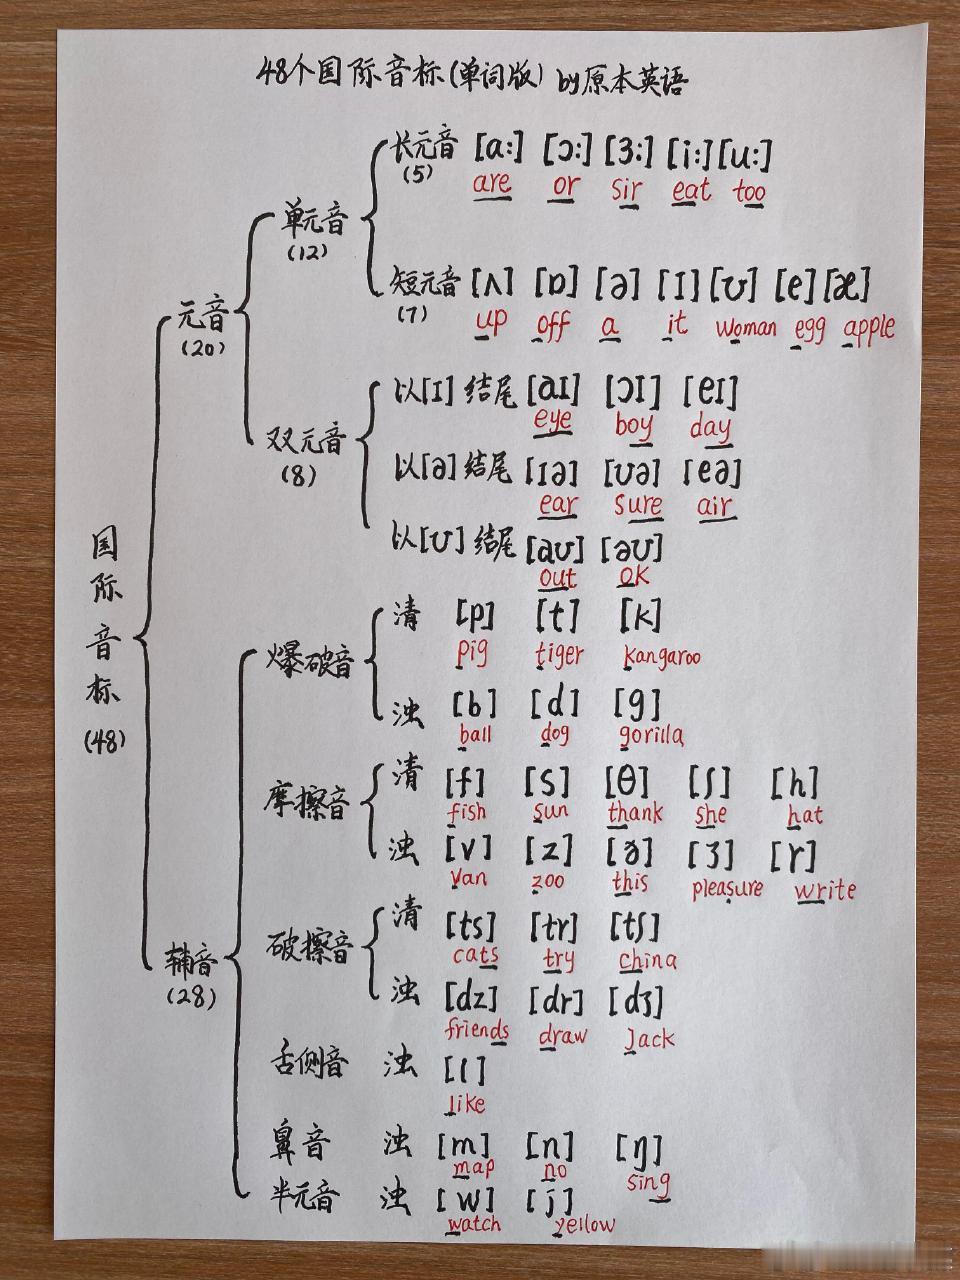 48个国际音标(单词版) by原本英语
长元音 [a:] [ɔ:] [3:] [i:] [u:]
(5) are or sir eat too
单元音
(12)
短元音 [ʌ] [ɒ] [ə] [ɪ] [ʊ] [e] [æ]
(7) up off a it woman egg apple
元音
(20)
以[ɪ]结尾 [aɪ] [ɔɪ] [eɪ]
eye boy day
双元音
(8)
以[ə]结尾 [ɪə] [ʊə] [eə]
ear sure air
以[ʊ]结尾 [aʊ] [əʊ]
out OK
国际音标
(48)
清 [p] [t] [k]
爆破音 pig tiger kangaroo
浊 [b] [d] [g]
ball dog gorilla
清 [f] [s] [θ] [ʃ] [h]
摩擦音 fish sun thank she hat
浊 [v] [z] [ð] [ʒ] [r]
van zoo this pleasure write
清 [ts] [tr] [tʃ]
破擦音 cats try china
辅音
(28)
浊 [dz] [dr] [dʒ]
friends draw Jack
舌侧音 浊 [l]
like
鼻音 浊 [m] [n] [ŋ]
map no sing
半元音 浊 [w] [j]
watch yellow